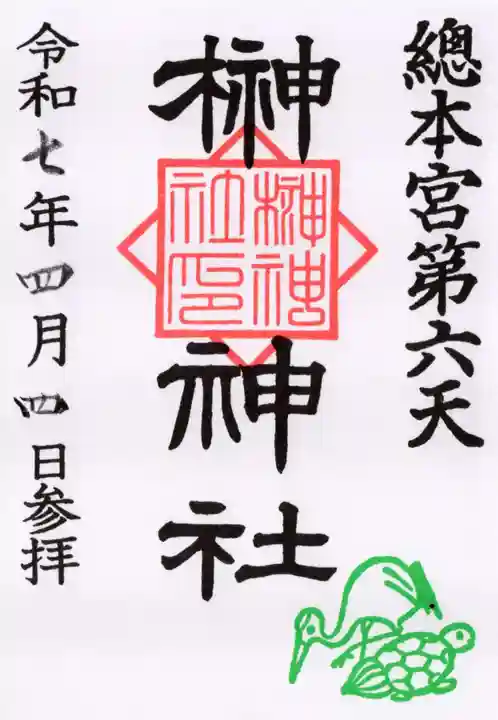 總本宮第六天
榊神社
榊神社印
令和七年四月四日参拝